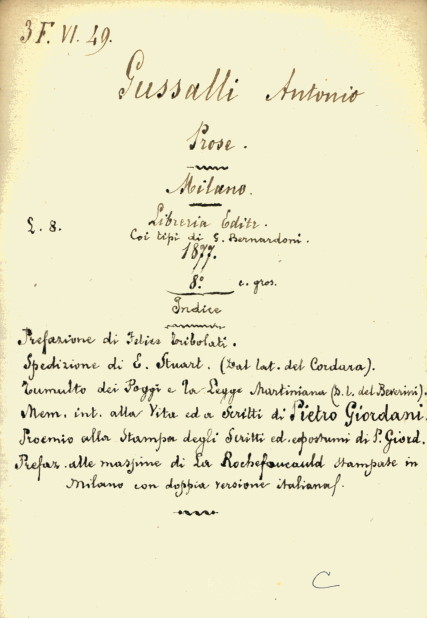 3 F. VI. 49.
Gussalli Antonio
Prose.
Milano.
L. 8.
Libreria Editr.
Coi tipi di G. Bernardoni.
1877.
8° c. gros.
Indice
Prefazione di Felice Tribolati.
Spedizione di E. Stuart. (Dal lat. del Cordara).
Tumulto dei Poggi e la Legge Martiniana (D. l. del Beverini).
Mem. int. alla Vita ed a Scritti di Pietro Giordani.
Proemio alla Stampa degli Scritti ed. epostumi di P. Giord.
Prefaz. alle massine di La Rochefoucauld stampate in
Milano con doppia versione italiana
C